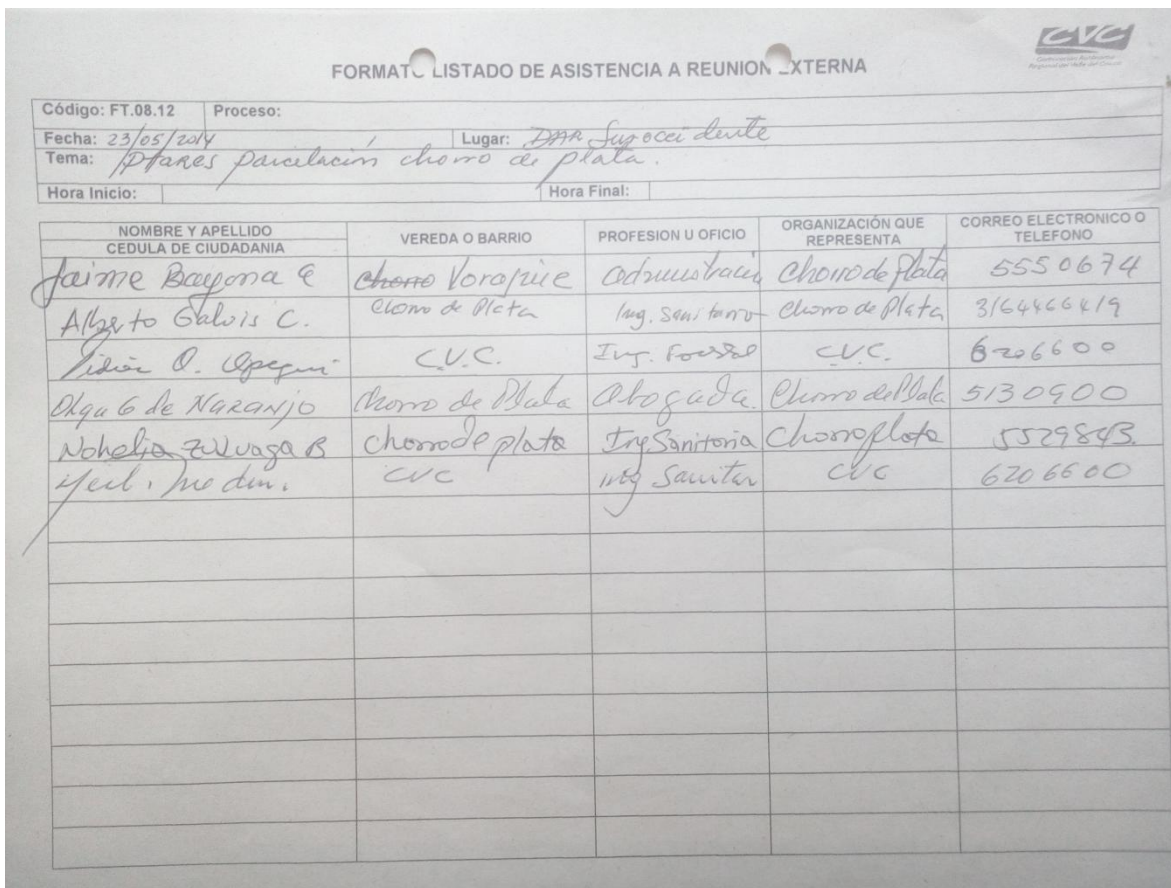 CVC
Corporación Autónoma
Regional del Valle del Cauca
FORMATO LISTADO DE ASISTENCIA A REUNION EXTERNA
Código: FT.08.12 Proceso:
Fecha: 23/05/2014 Lugar: DAR Suroccidente
Tema: Ptares parcelación chorro de plata.
Hora Inicio: Hora Final:
NOMBRE Y APELLIDO CEDULA DE CIUDADANIA VEREDA O BARRIO PROFESION U OFICIO ORGANIZACIÓN QUE REPRESENTA CORREO ELECTRONICO O TELEFONO
Jaime Bayona chorro Chorro de Plata 5550674
Alberto Galvis C. Chorro de Plata Ing. Sanitario Chorro de Plata 3164466419
O. C.V.C. Ing. C.V.C. 6206600
Olga G de NARANJO Chorro de Plata Abogada. Chorro de Plata 5130900
Nohelia Zuluaga B chorro de plata Ing. Sanitaria Chorro plata 5529843.
CVC Ing Sanitar CVC 6206600